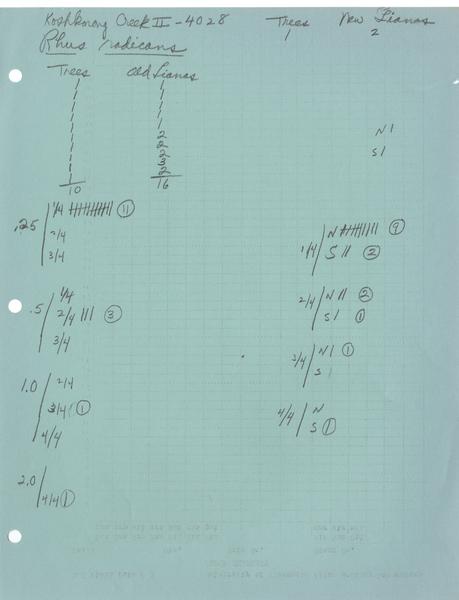 Koshkonong Creek II - 4028 Trees New Lianas
1 2
Rhus radicans
Trees Old Lianas
1 1
1 1
1 1
1 1
1 2
1 2
1 2
1 3
1 2
10 16
N 1
S 1
.25 1/4 11
2/4
3/4
.5 1/4
2/4 III 3
3/4
1.0 2/4
3/4 1 1
4/4
2.0 4/4 1
1/4 N 9
S II 2
2/4 N II 2
S 1 1
3/4 N 1 1
S 1
4/4 N
S 1